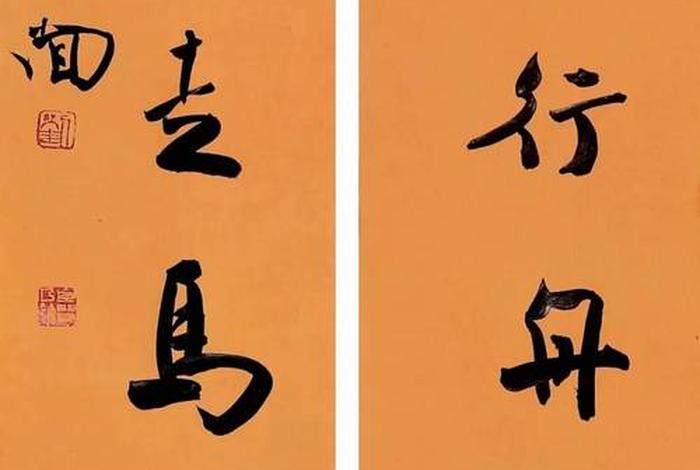 行舟
走馬